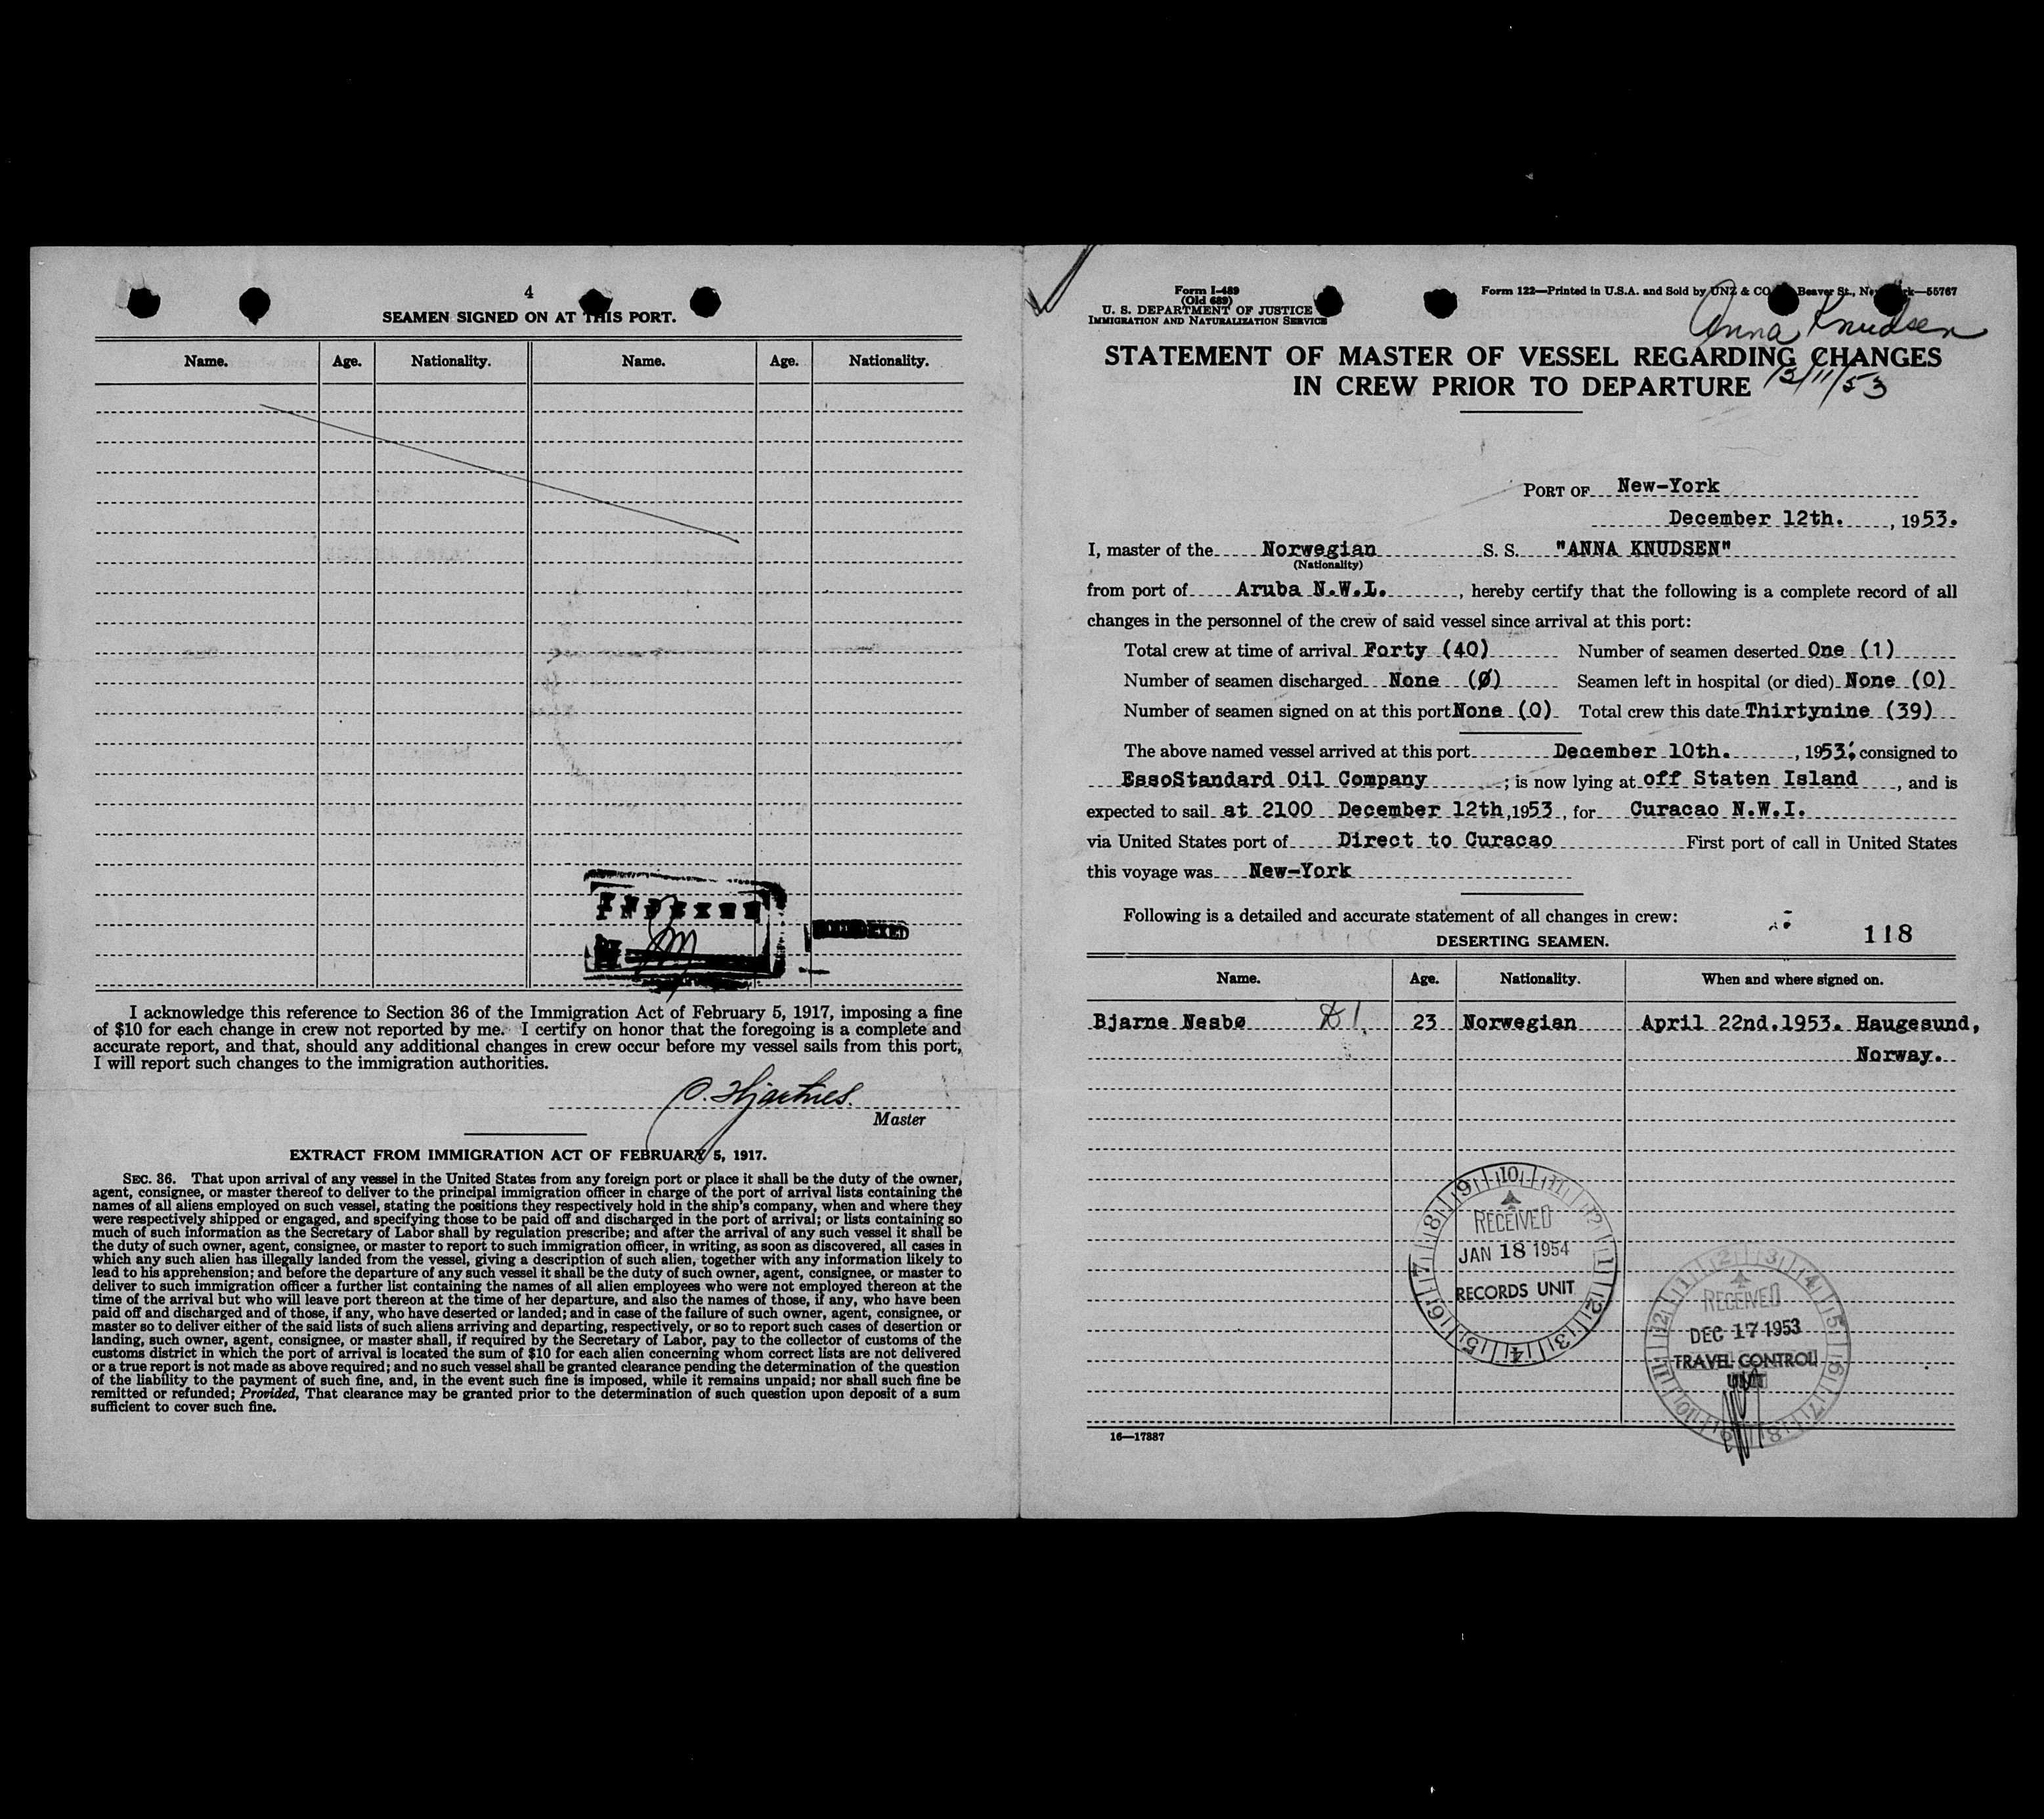 4
SEAMEN SIGNED ON AT THIS PORT.
Name. Age. Nationality. Name. Age. Nationality.
I acknowledge this reference to Section 36 of the Immigration Act of February 5, 1917, imposing a fine
of $10 for each change in crew not reported by me. I certify on honor that the foregoing is a complete and
accurate report, and that, should any additional changes in crew occur before my vessel sails from this port,
I will report such changes to the immigration authorities.
Master
EXTRACT FROM IMMIGRATION ACT OF FEBRUARY 5, 1917.
SEC. 36. That upon arrival of any vessel in the United States from any foreign port or place it shall be the duty of the owner,
agent, consignee, or master thereof to deliver to the principal immigration officer in charge of the port of arrival lists containing the
names of all aliens employed on such vessel, stating the positions they respectively hold in the ship's company, when and where they
were respectively shipped or engaged, and specifying those to be paid off and discharged in the port of arrival; or lists containing so
much of such information as the Secretary of Labor shall by regulation prescribe; and after the arrival of any such vessel it shall be
the duty of such owner, agent, consignee, or master to report to such immigration officer, in writing, as soon as discovered, all cases in
which any such alien has illegally landed from the vessel, giving a description of such alien, together with any information likely to
lead to his apprehension; and before the departure of any such vessel it shall be the duty of such owner, agent, consignee, or master to
deliver to such immigration officer a further list containing the names of all alien employees who were not employed thereon at the
time of the arrival but who will leave port thereon at the time of her departure, and also the names of those, if any, who have been
paid off and discharged and of those, if any, who have deserted or landed; and in case of the failure of such owner, agent, consignee, or
master so to deliver either of the said lists of such aliens arriving and departing, respectively, or so to report such cases of desertion or
landing, such owner, agent, consignee, or master shall, if required by the Secretary of Labor, pay to the collector of customs of the
customs district in which the port of arrival is located the sum of $10 for each alien concerning whom correct lists are not delivered
or a true report is not made as above required; and no such vessel shall be granted clearance pending the determination of the question
of the liability to the payment of such fine, and, in the event such fine is imposed, while it remains unpaid; nor shall such fine be
remitted or refunded; Provided, That clearance may be granted prior to the determination of such question upon deposit of a sum
sufficient to cover such fine.
Form I-489
(Old 689)
U. S. DEPARTMENT OF JUSTICE
IMMIGRATION AND NATURALIZATION SERVICE
Form 122—Printed in U.S.A. and Sold by UNZ & CO Beaver St., —55767
Anna Knudsen
STATEMENT OF MASTER OF VESSEL REGARDING CHANGES
IN CREW PRIOR TO DEPARTURE
12/11/53
PORT OF New-York
December 12th. , 1953.
I, master of the Norwegian S. S. "ANNA KNUDSEN"
(Nationality)
from port of Aruba N.W.I. , hereby certify that the following is a complete record of all
changes in the personnel of the crew of said vessel since arrival at this port:
Total crew at time of arrival Forty (40) Number of seamen deserted One (1)
Number of seamen discharged None (0) Seamen left in hospital (or died) None (0)
Number of seamen signed on at this port None (0) Total crew this date Thirtynine (39)
The above named vessel arrived at this port December 10th. , 1953; consigned to
EssoStandard Oil Company ; is now lying at off Staten Island , and is
expected to sail at 2100 December 12th, 1953 , for Curacao N.W.I.
via United States port of Direct to Curacao First port of call in United States
this voyage was New-York
Following is a detailed and accurate statement of all changes in crew:
118
DESERTING SEAMEN.
Name. Age. Nationality. When and where signed on.
Bjarne Nesbø 23 Norwegian April 22nd.1953. Haugesund,
Norway.
RECEIVED
JAN 18 1954
RECORDS UNIT
RECEIVED
DEC 17 1953
TRAVEL CONTROL
UNIT
16—17887